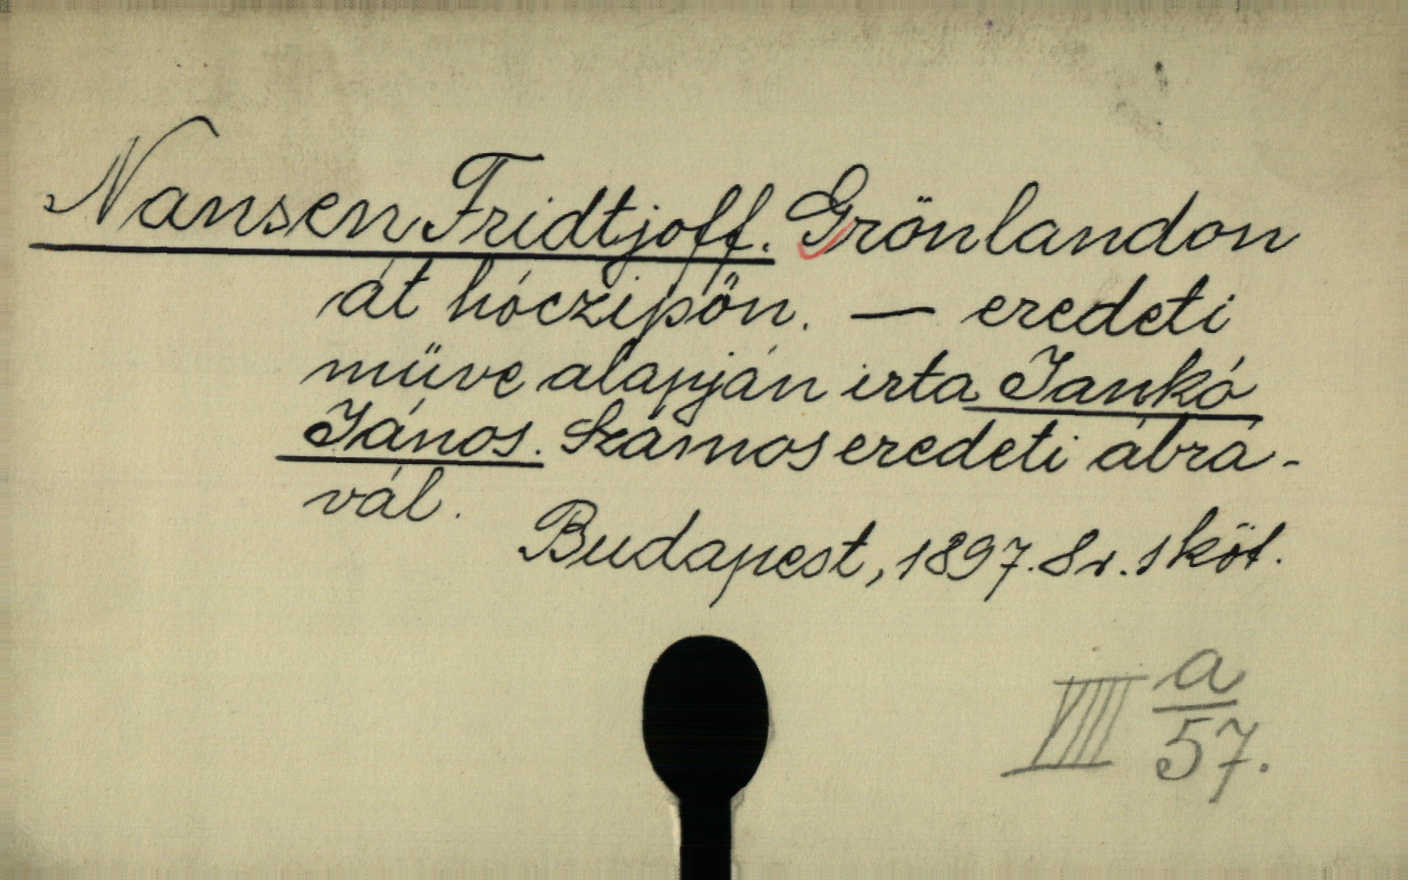 Nansen Fridtjoff. Grönlandon
át hóczipőn. — eredeti
müve alapján irta Jankó
János. Számos eredeti ábrá-
vál.
Budapest, 1897. 8r. 1 köt.
VIII a/57.